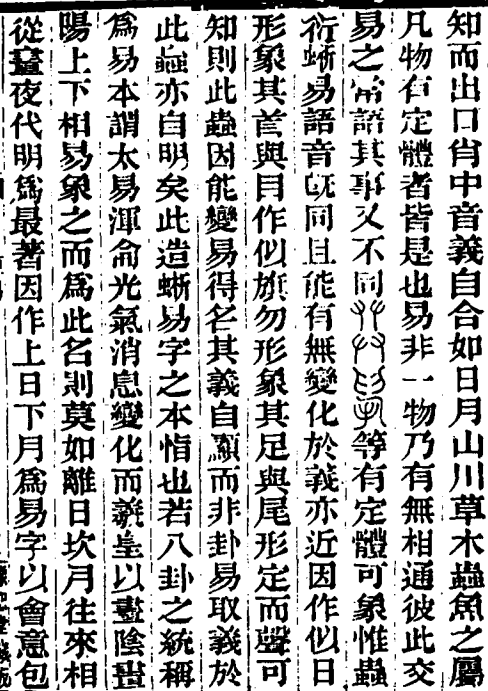 知而出口肖中音義自合如日月山川草木蟲魚之屬
凡物有定體者皆是也易非一物乃有無相通彼此交
易之常語其事又不同等有定體可象惟蟲
衍蜥易語音旣同且能有無變化於義亦近因作似日
形象其首與目作似旗勿形象其足與尾形定而聲可
知則此蟲因能變易得名其義自顯而非卦易取義於
此蟲亦自明矣此造蜥易字之本恉也若八卦之統稱
爲易本謂太易渾侖光氣消息變化而羲皇以畫陰畫
陽上下相易象之而爲此名則莫如離日坎月往來相
從晝夜代明爲最著因作上日下月爲易字以會意包